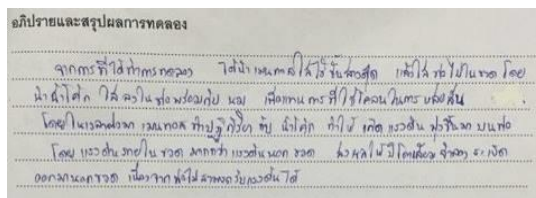 อภิปรายและสรุปผลการทดลอง
จากการที่ได้ทำการทดลอง ได้นำเมนทอสใส่ไว้ชั้น แล้วใส่ท่อไปในขวด โดย
นำน้ำโค้ก ใส่ลงในท่อพร้อมกับ นม เพื่อแทน การที่ใช้โคลนในการ
โดยในเวลาต่อมา เมนทอส ทำปฏิกิริยา กับ น้ำโค้ก ทำให้ เกิด แรงดัน พุ่งขึ้นมา บนท่อ
โดย แรงดันภายในขวด มากกว่า แรงดันนอก ขวด ส่งผลให้ จำลอง ระเบิด
ออกมานอกขวด เนื่องจาก ท่อไม่สามารถรับแรงดันได้